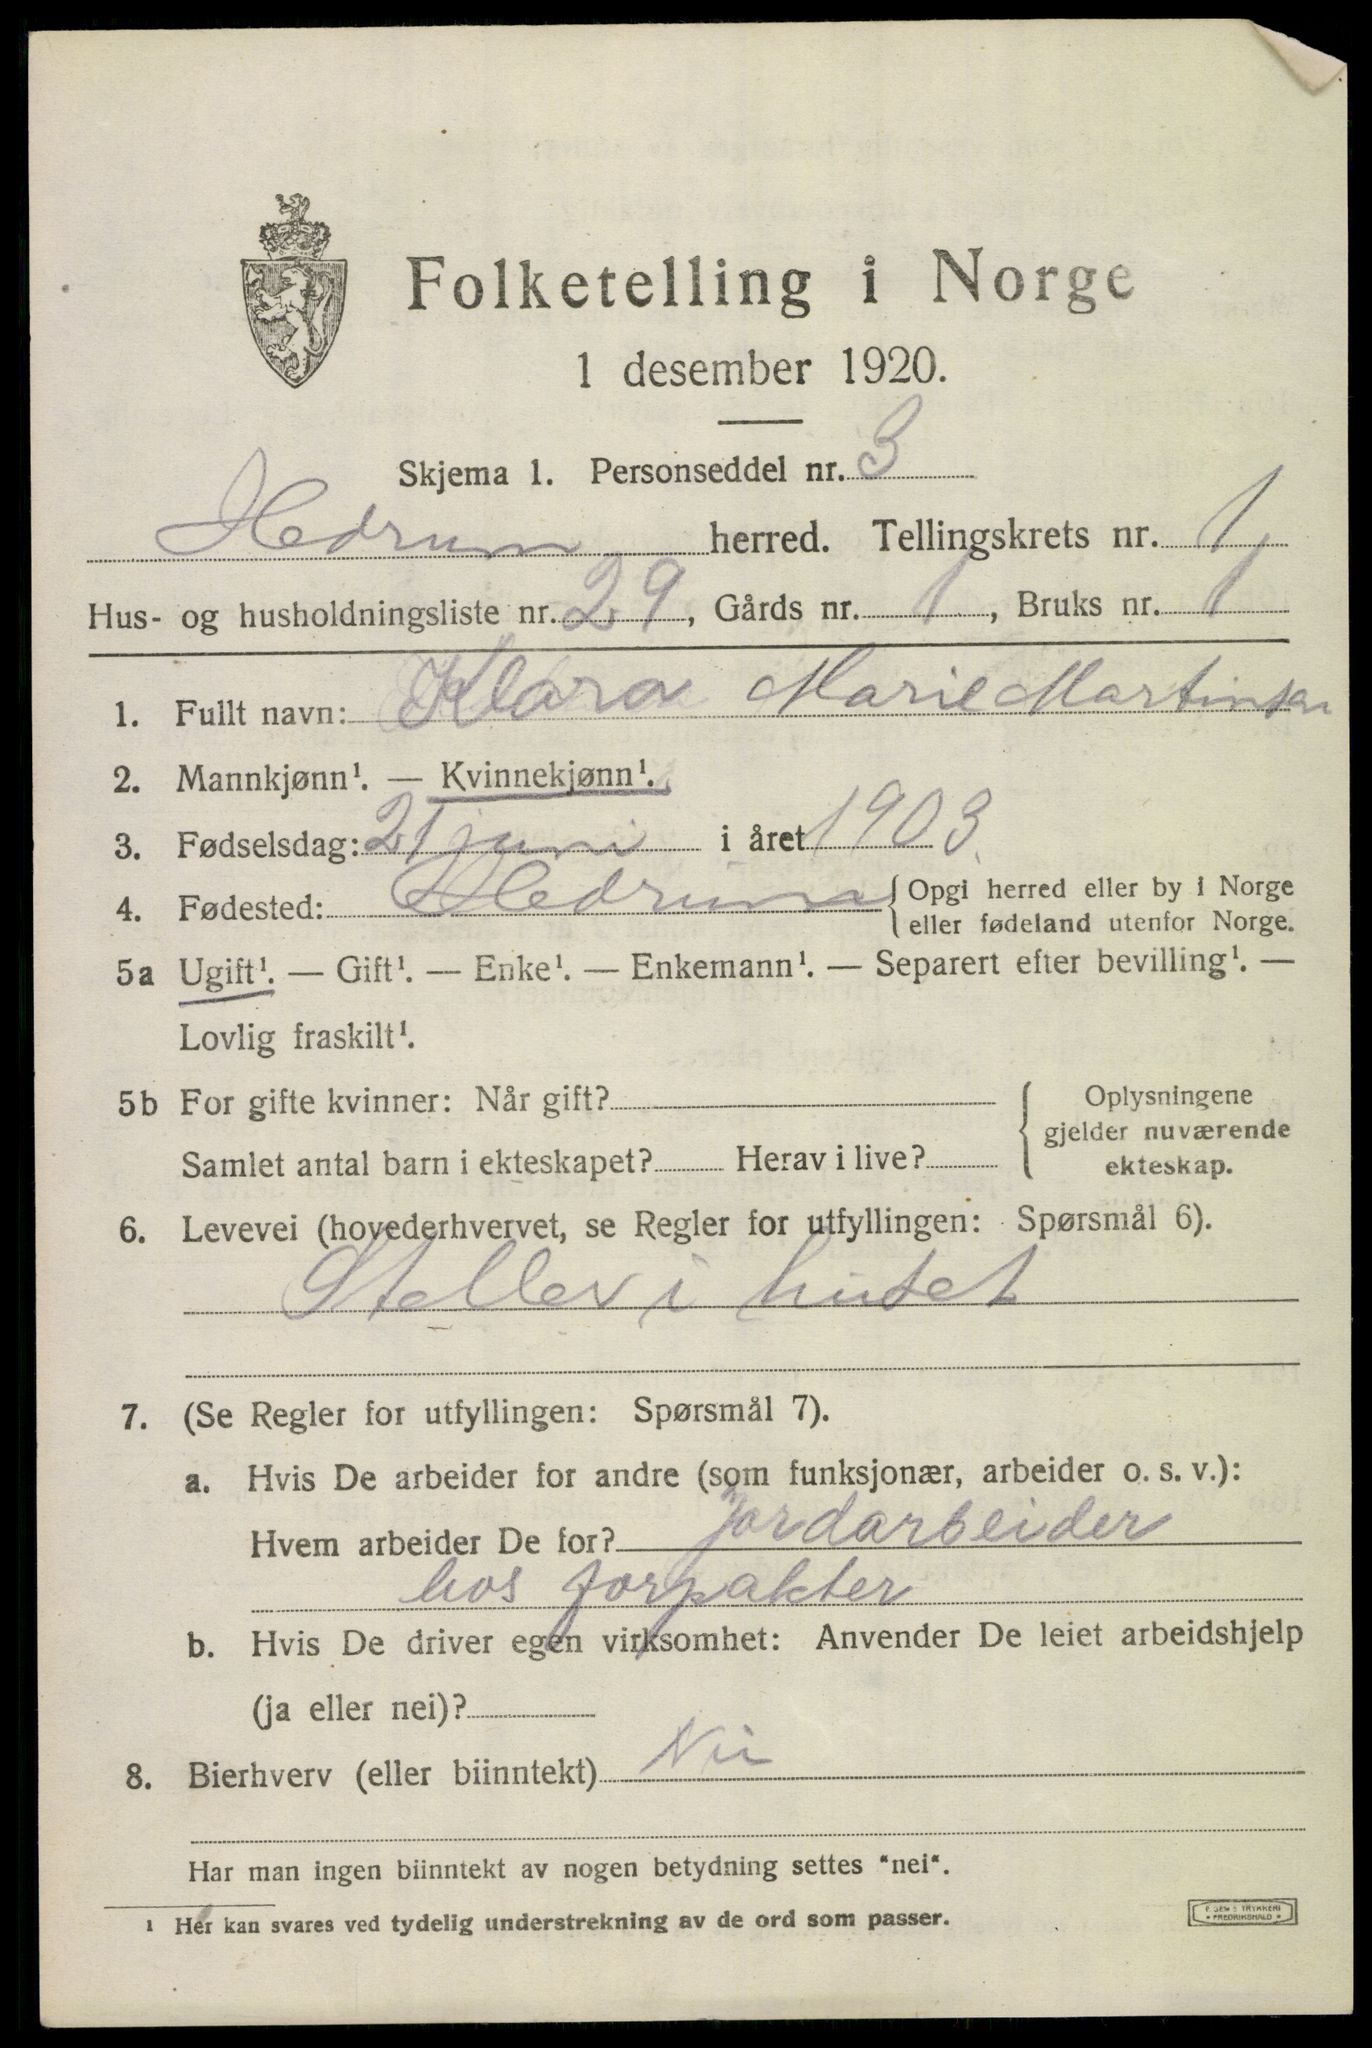 Folketelling i Norge
1 desember 1920.
Skjema 1. Personseddel nr. 3
Hedrum herred. Tellingskrets nr. 1
Hus- og husholdningsliste nr. 29, Gårds nr. 1, Bruks nr. 1
1. Fullt navn: Klara Marie Martinsen
2. Mannkjønn¹. — Kvinnekjønn¹.
3. Fødselsdag: 21 juni i året 1903
4. Fødested: Hedrum { Opgi herred eller by i Norge
eller fødeland utenfor Norge.
5a Ugift¹. — Gift¹. — Enke¹. — Enkemann¹. — Separert efter bevilling¹. —
Lovlig fraskilt¹.
5b For gifte kvinner: Når gift? { Oplysningene
gjelder nuværende
Samlet antal barn i ekteskapet? Herav i live? ekteskap.
6. Levevei (hovederhvervet, se Regler for utfyllingen: Spørsmål 6).
Steller i huset
7. (Se Regler for utfyllingen: Spørsmål 7).
a. Hvis De arbeider for andre (som funksjonær, arbeider o. s. v.):
Hvem arbeider De for? jordarbeider
hos forpakter
b. Hvis De driver egen virksomhet: Anvender De leiet arbeidshjelp
(ja eller nei)?
8. Bierhverv (eller biinntekt) Nei
Har man ingen biinntekt av nogen betydning settes "nei".
¹ Her kan svares ved tydelig understrekning av de ord som passer.
TRYKKERI
• FREDRIKSHALD •